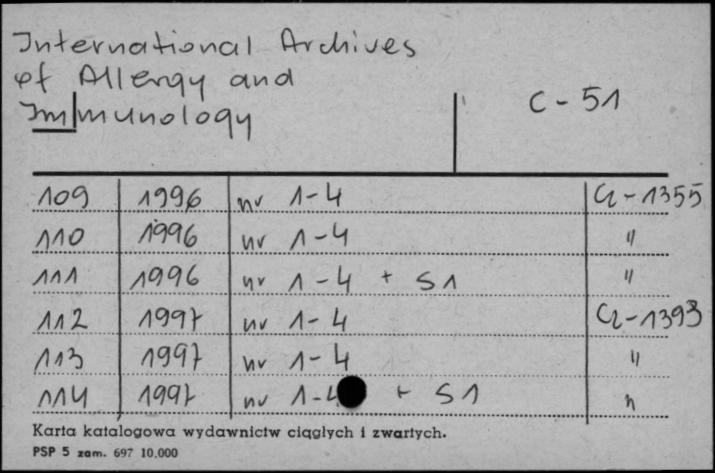 International Archives
of Allergy and
Immunology
C-51
109 1996 nr 1-4 Cz-1355
110 1996 nr 1-4 "
111 1996 nr 1-4 + S1 "
112 1997 nr 1-4 Cz-1393
113 1997 nr 1-4 "
114 1997 nr 1-4 + S1 "
Karta katalogowa wydawnictw ciągłych i zwartych.
PSP 5 zam. 697 10.000